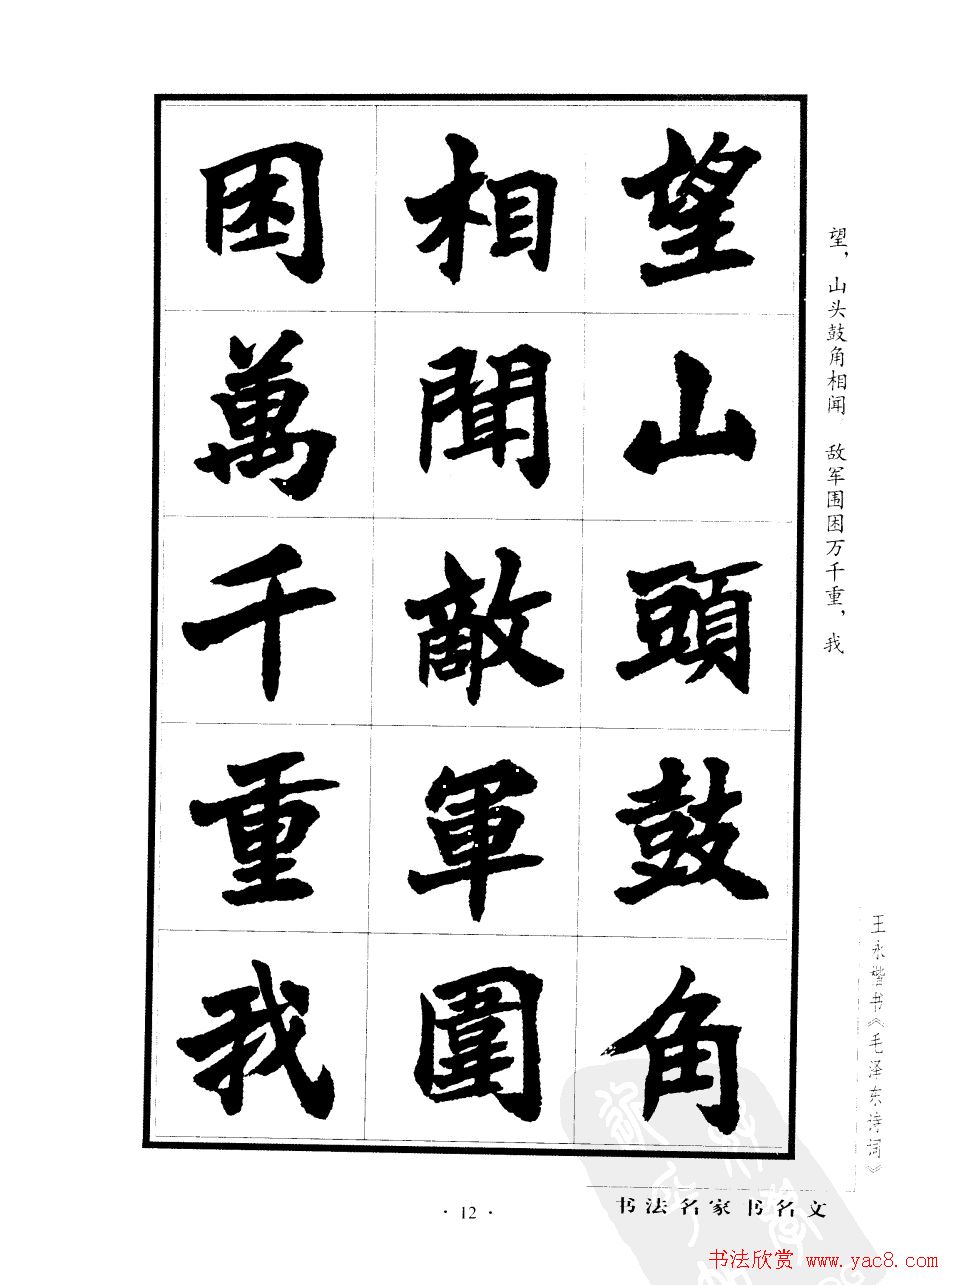 望山頭鼓角
相聞敵軍圍
困萬千重我
望，山头鼓角相闻 敌军围困万千重，我
王永楷书《毛泽东诗词》
书法名家书名文
· 12 ·
书法欣赏 www.yac8.com